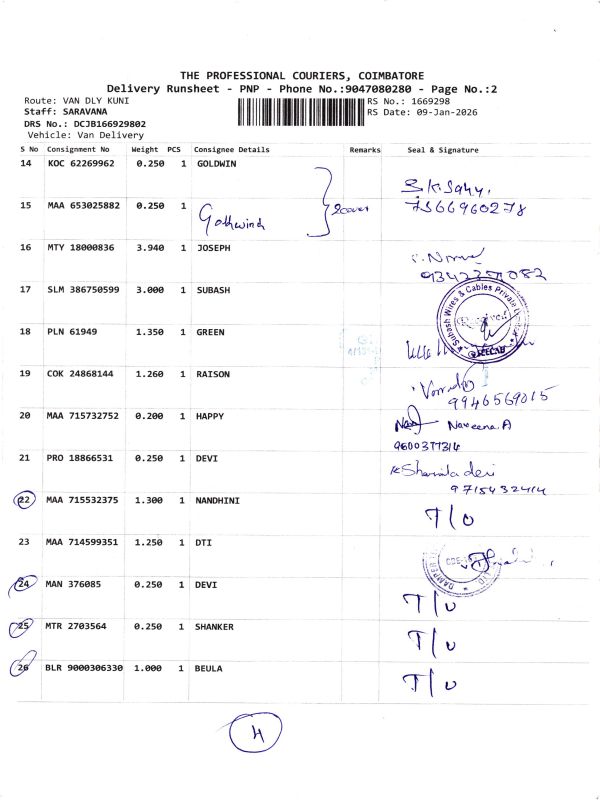 THE PROFESSIONAL COURIERS, COIMBATORE
Delivery Runsheet - PNP - Phone No.:9047080280 - Page No.:2
Route: VAN DLY KUNI
RS No.: 1669298
Staff: SARAVANA
RS Date: 09-Jan-2026
DRS No.: DCJB166929802
Vehicle: Van Delivery
S No Consignment No Weight PCS Consignee Details Remarks Seal & Signature
14 KOC 62269962 0.250 1 GOLDWIN
15 MAA 653025882 0.250 1 2cover 7566960278
16 MTY 18000836 3.940 1 JOSEPH
17 SLM 386750599 3.000 1 SUBASH Subash Wires & Cables Private
18 PLN 61949 1.350 1 GREEN
19 COK 24868144 1.260 1 RAISON
9946569015
20 MAA 715732752 0.200 1 HAPPY Naveena.A
9600377314
21 PRO 18866531 0.250 1 DEVI K Sharmila devi
9715432414
22 MAA 715532375 1.300 1 NANDHINI T/O
23 MAA 714599351 1.250 1 DTI
24 MAN 376085 0.250 1 DEVI T/O
25 MTR 2703564 0.250 1 SHANKER T/O
26 BLR 9000306330 1.000 1 BEULA T/O
4